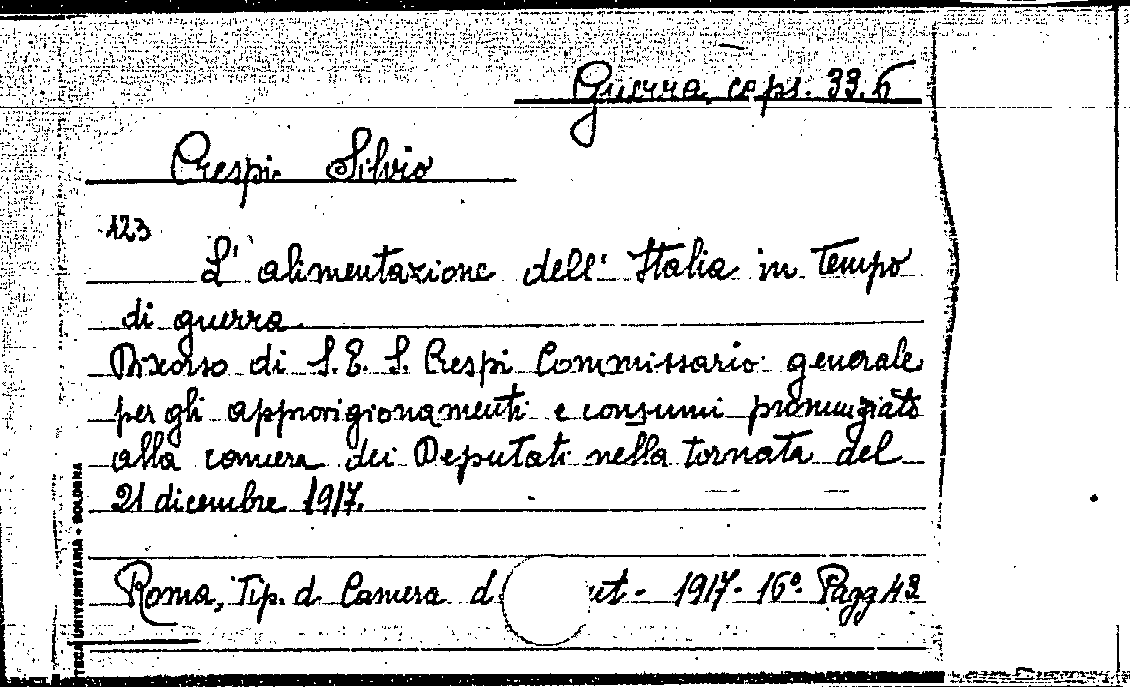 Guerra, caps. 33.6
Crespi Silvio
123
L'alimentazione dell'Italia in tempo
di guerra
Discorso di S. E. S. Crespi Commissario generale
per gli approvigionamenti e consumi pronunziato
alla camera dei Deputati nella tornata del
21 dicembre 1917.
Roma, Tip. d. Camera d. ut. - 1917 - 16° Pagg 43
TECA UNIVERSITARIA - BOLOGNA